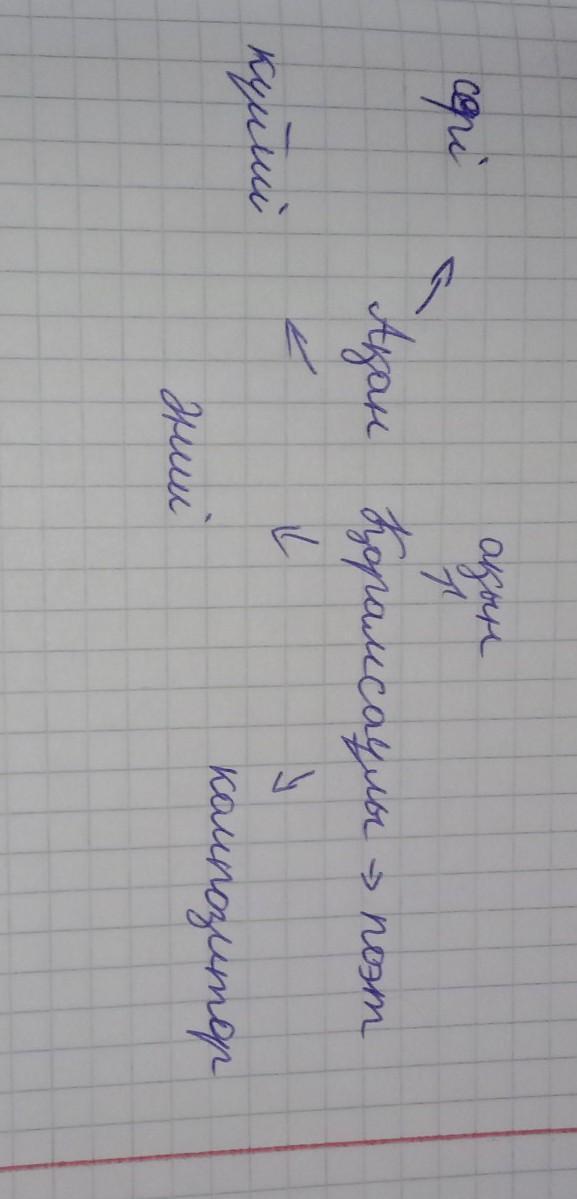 сері ақын
Ақан Қорамсаулы → поэт
күйші композитор
Әнші